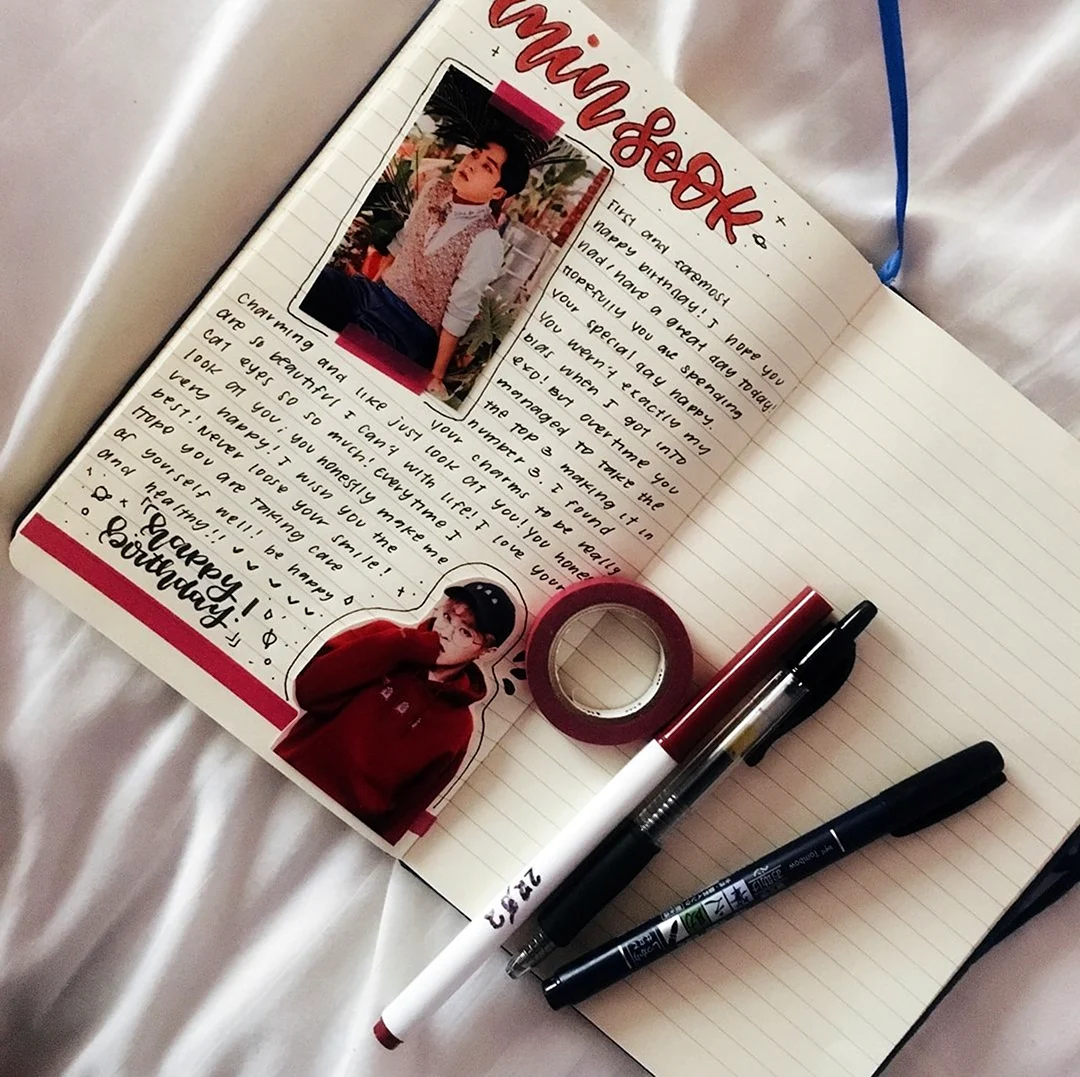 minseok
First and foremost
happy birthday! I hope you
had/have a great day today!
Hopefully you are spending
your special day happy.
You wern't exactly my
bias when I got into
EXO! But overtime you
managed to take the
the top 3 making it in
number 3. I found
your charms to be really
charming and like just look at you! You
are so beautiful I can't with life! I love your
cat eyes so so much! Everytime I
look at you; you honestly make me
very happy! I wish you the
best! Never loose your smile!
Hope you are taking care
of yourself well! be happy
and healthy!!
「happy
birthday!」
Tombow